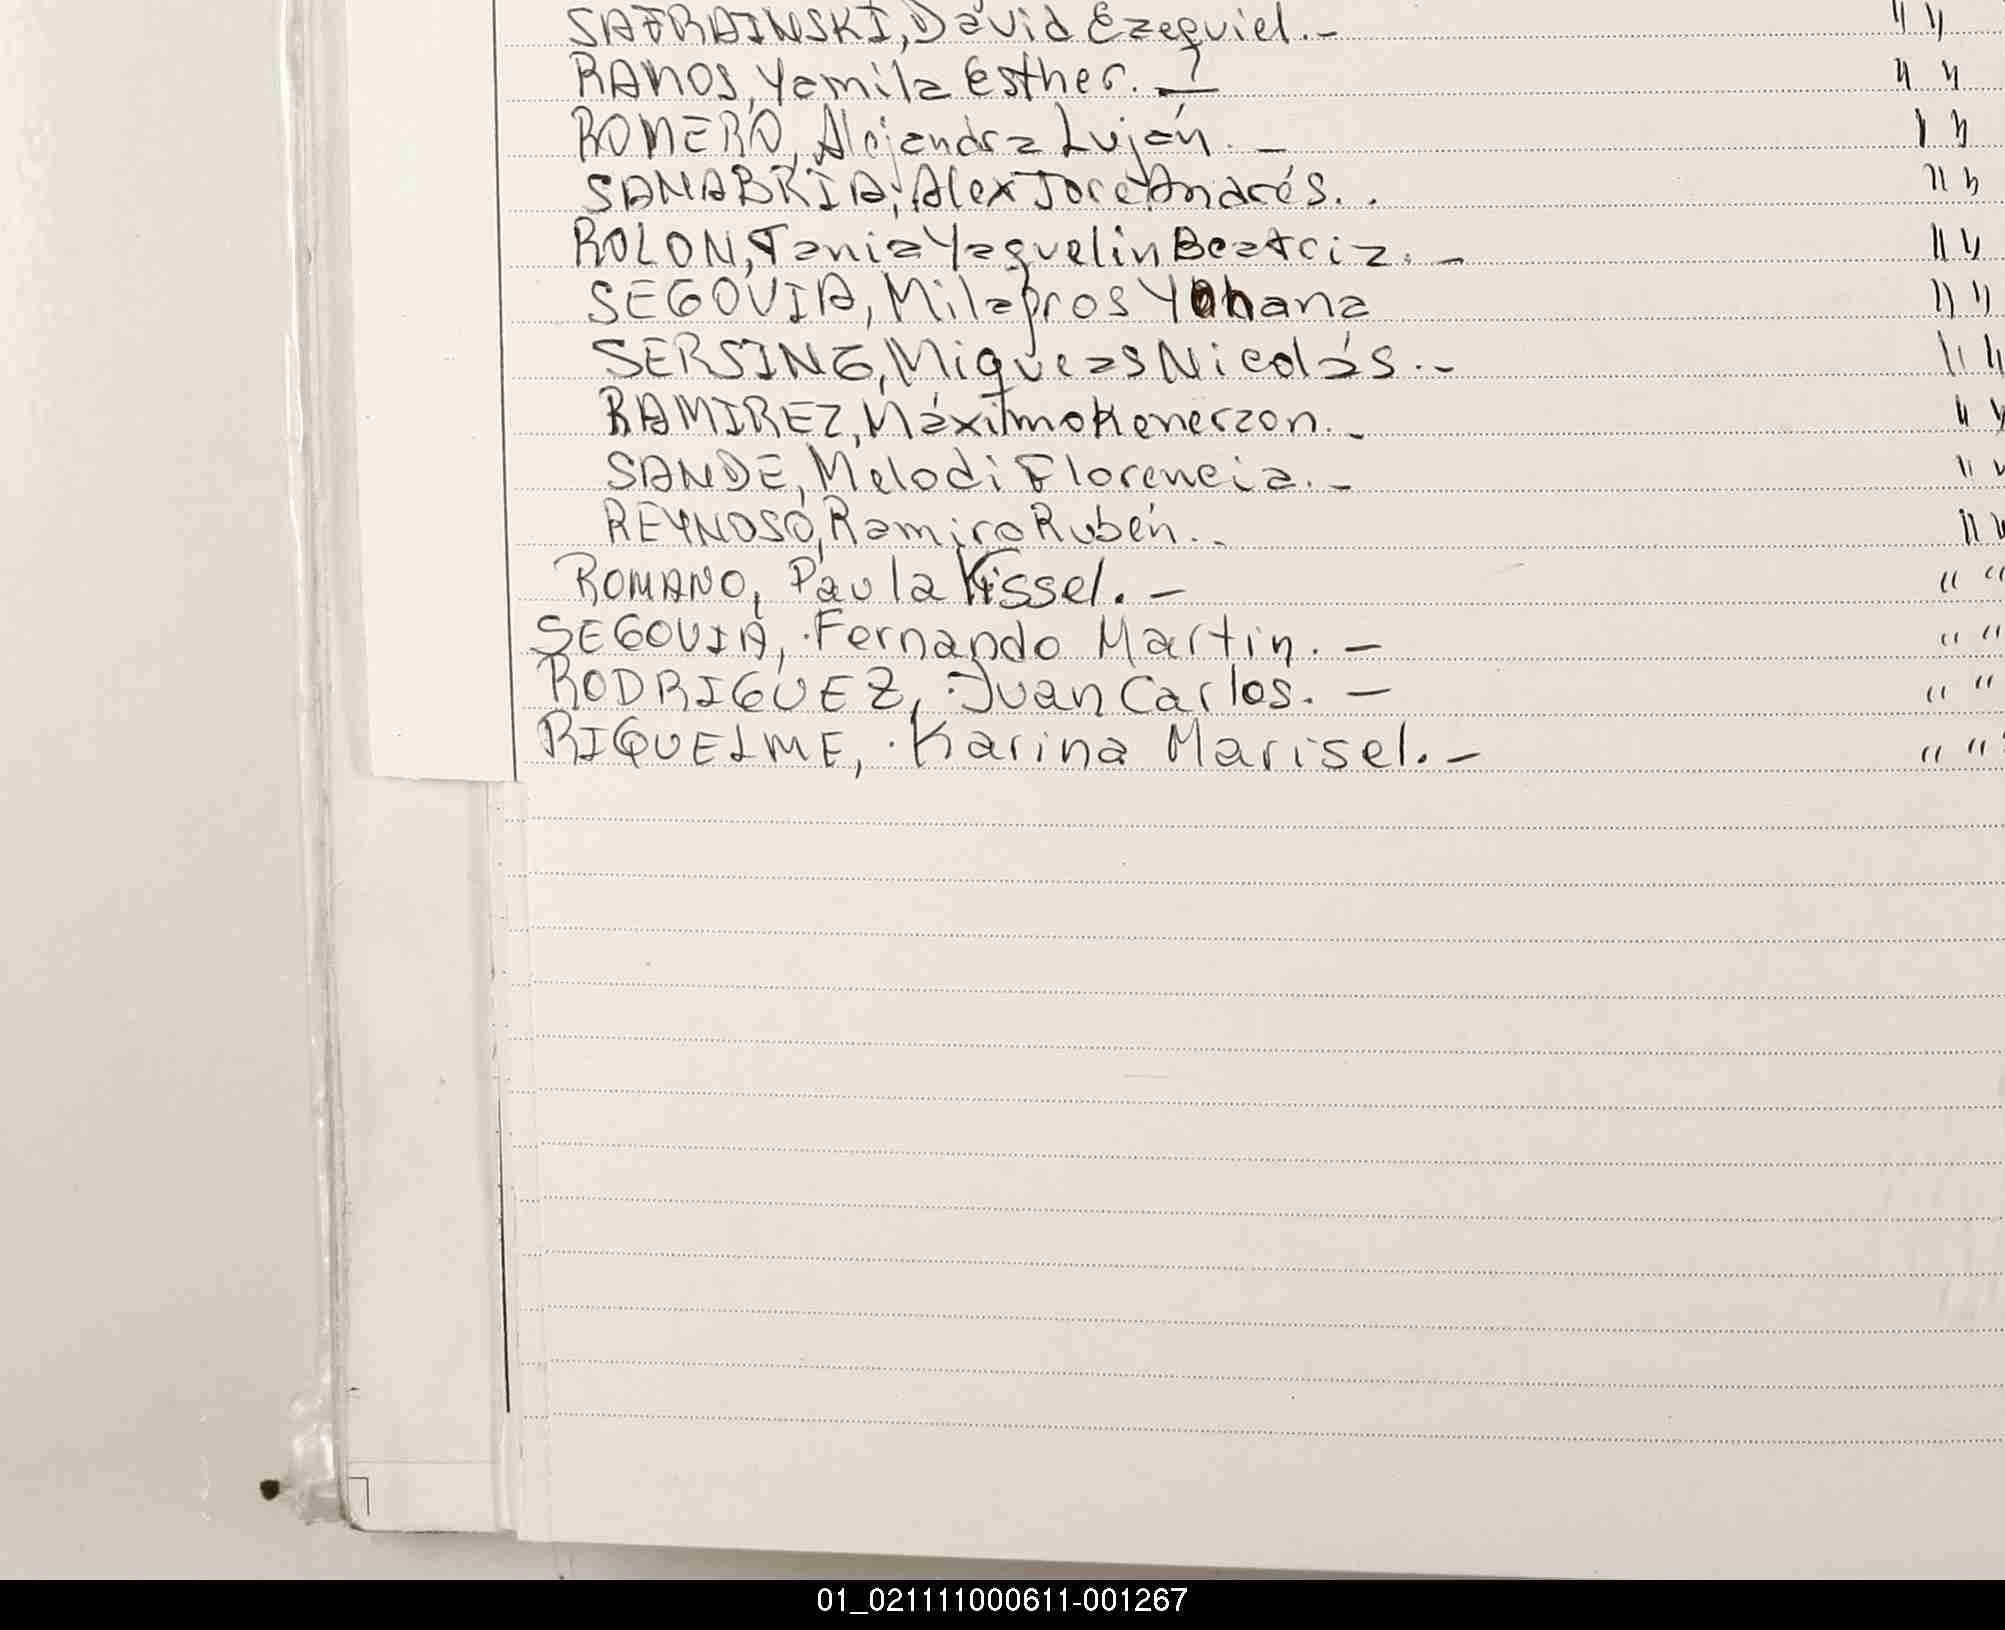 SAFRAINSKI, David Ezequiel.- " "
RAMOS, Yamila Esther. — " "
ROMERO, Alejandra Luján. - " "
SANABRIA, Alex José Andrés. . " "
ROLON, Tania Yaquelin Beatriz. - " "
SEGOVIA, Milagros Yohana " "
SERSING, Miqueas Nicolás.- " "
RAMIREZ, Máximo Kenerzon.- " "
SANDE, Melodi Florencia.- " "
REYNOSO, Ramiro Rubén.. " "
ROMANO, Paula Kissel. - " "
SEGOVIA, Fernando Martin. - " "
RODRIGUEZ, Juan Carlos. - " "
RIQUELME, Karina Marisel. - " "
01_021111000611-001267